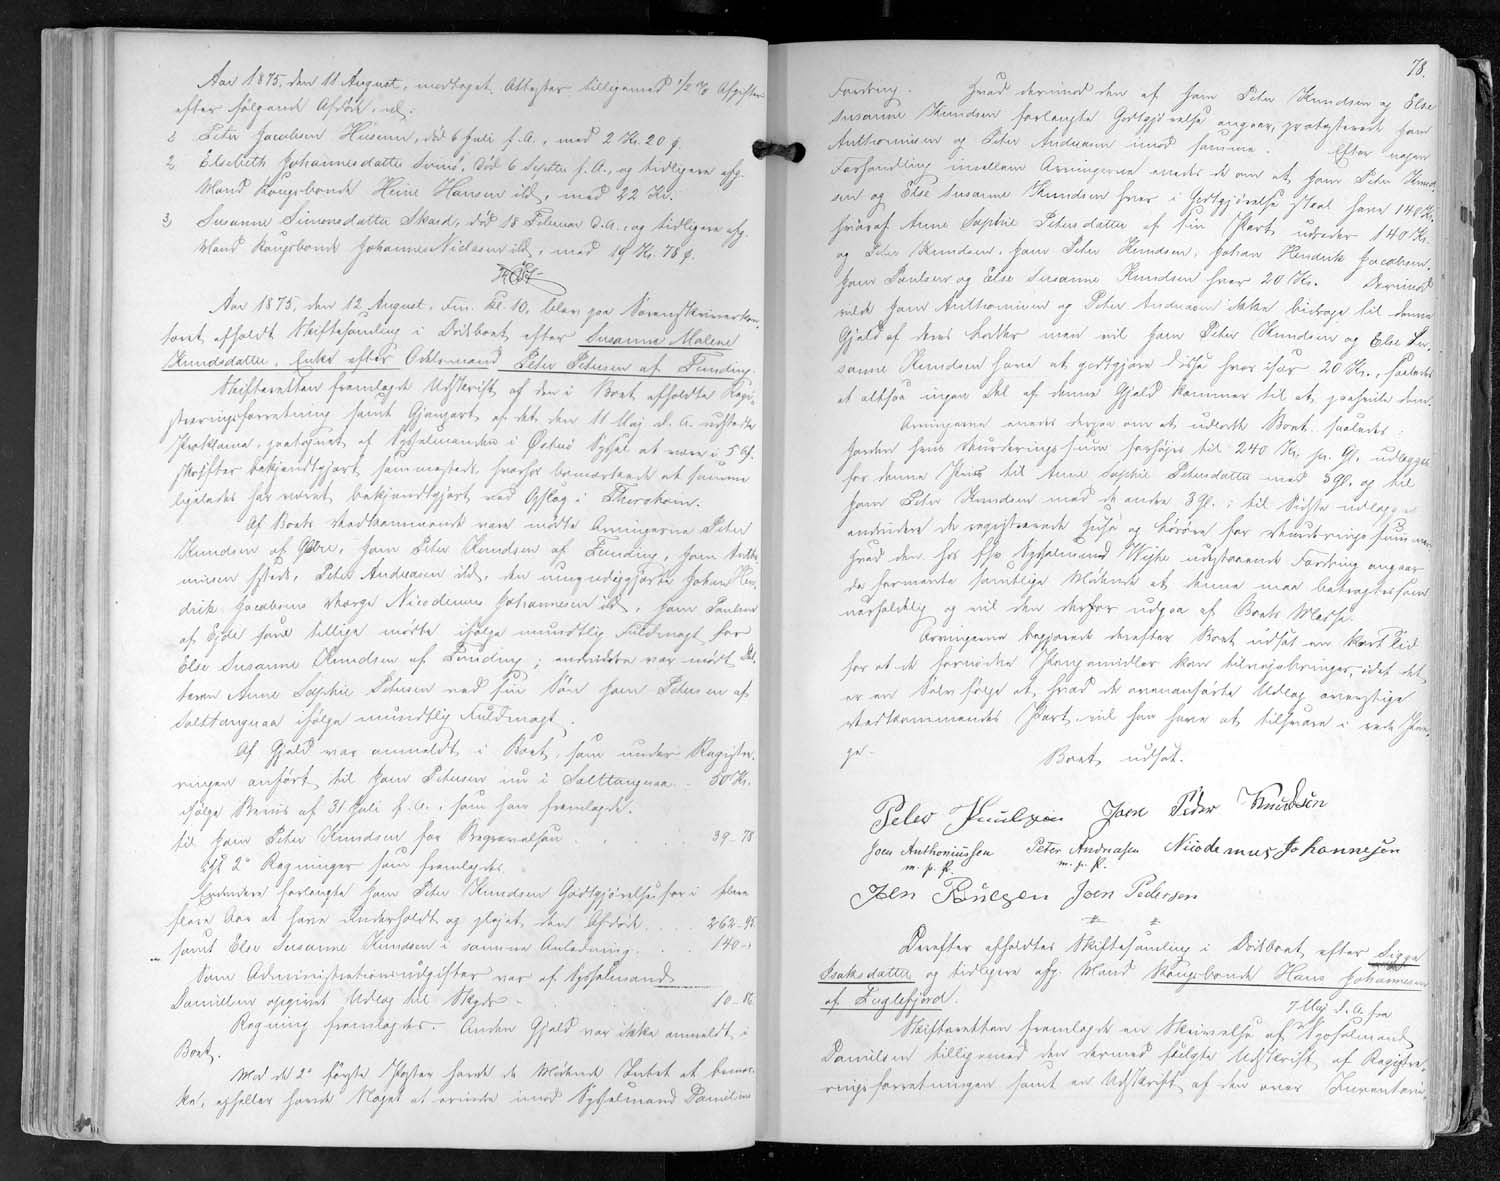 Aar 1875, den 11 August, modtaget Attester tilligemed 1/2 % Afgifter
efter følgende Afdøde, nl:
1 Peter Jacobsen Husum, død 6 Juli f. A., med 2 Kr. 20 ø.
2, Elsebeth Johannesdatter Svinø, død 6 Septbr f. A., og tidligere afg.
Mand Kongsbonde Heine Hansen ibd, med 22 Kr.
3, Susanne Simonsdatter Skard, død 18 Februar d. A., og tidligere afg.
Mand Kongsbonde Johannes Nielsen ibd, med 19 Kr. 78 ø.
Aar 1875, den 12 August, Fm. Kl. 10, blev paa Sorenskriverkon-
toret afholdt Skiftesamling i Dødsboet efter Susanne Malene
Knudsdatter, Enke efter Odelsmand Peter Petersen af Funding.
Skifteretten fremlagde Udskrift af den i Boet afholdte Regi-
streringsforretning samt Gjenpart af det den 11 Maj d. A. udstedte
Proklama, paategnet af Sysselmanden i Østerø Syssel at være i 5 Af-
skrifter bekjendtgjort sammesteds, hvorhos bemærkede at samme
ligeledes har været bekjendtgjort ved Opslag i Thorshavn.
Af Boets Vedkommende vare mødte Arvingerne Peter
Knudsen af Gjov, Joen Peter Knudsen af Funding, Joen Antho-
niusen sstds, Peter Andreasen ibd, den umyndiggjorte Johan Hen-
drik Jacobsens Værge Nicodemus Johannesen ibd, Joen Poulsen
af Ejde som tillige mødte ifølge mundtlig Fuldmagt for
Else Susanne Knudsen af Funding; endvidere var mødt Dat-
teren Anne Sophie Petersen ved sin Søn Joen Petersen af
Solttangnaa ifølge mundtlig Fuldmagt.
Af Gjæld var anmeldt i Boet, som under Registre-
ringen anført til Joen Petersen nu i Solttangnaa . 50 Kr.
ifølge Bevis af 31 Juli f. A., som han fremlagde.
til Joen Peter Knudsen for Begravelsen . . . . 39 - 78
ifg. 2 Regninger som fremlagdes.
Endvidere forlangte Joen Peter Knudsen Godtgjørelse for i
flere Aar at have underholdt og plejet den Afdøde . . . . 262 - 95
samt Else Susanne Knudsen i samme Anledning . . . 140 - "
Som Administrationsudgifter var af Sysselmand
Danielsen opgivet Udlæg til Skyds . . 10 - 16
Regning fremlagdes. Anden Gjæld var ikke anmeldt i
Boet.
Mod de 2 første Poster havde de Mødende Intet at bemær-
ke, ejheller havde Noget at erindre imod Sysselmand Danielsens
78.
Fordring. Hvad derimod den af Joen Peter Knudsen og Else
Susanne Knudsen forlangte Godtgjørelse angaar, protesterede Joen
Anthoniusen og Peter Andreasen imod samme. Efter nogen
Forhandling imellem Arvingerne enedes de om at Joen Peter Knud-
sen og Else Susanne Knudsen hver i Godtgjørelse skal have 140 Kr.
hvoraf Anne Sophie Petersdatter af sin Part udreder 140 Kr.
og Peter Knudsen, Joen Peter Knudsen, Johan Hendrik Jacobsen,
Joen Poulsen og Else Susanne Knudsen hver 20 Kr. Derimod
vilde Joen Anthoniusen og Peter Andreasen ikke bidrage til denne
Gjæld af deres Lodder men vil Joen Peter Knudsen og Else Su-
sanne Knudsen have at godtgjøre disse hver især 20 Kr., saaledes
at altsaa ingen Del af denne Gjæld kommer til at paahvile dem.
Arvingerne enedes derpaa om at udlodde Boet saaledes:
Jorden hvis Vurderingssum forhøjes til 240 Kr. pr. Gl. udlægges
for denne Pris til Anne Sophie Petersdatter med 3 Gl. og til
Joen Peter Knudsen med de andre 3 Gl.; til Sidste udlægges
endvidere de registrerede Huse og Løsøre for Vurderingssummen.
Hvad den hos fhv Sysselmand Wiihe udestaaende Fordring angaar
da formente samtlige Mødende at denne maa betragtes som
uerholdelig og vil den derfor udgaa af Boets Masse.
Arvingerne begjærede derefter Boet udsat en kort Tid
for at de fornødne Pengemidler kan tilvejebringes, idet det
er en Selvfølge at, hvad de ovenanførte Udlæg overstige
Vedkommendes Part vil han have at tilsvare i rede Pen-
ge.
Boet udsat.
Peter Knudsen Joen Peder Knudsen
Joen Anthoniussen Peter Andreasen Nicodemus Johannesen
m. p. P. m. p. P.
Joen Poulsen Joen Pedersen
Derefter afholdtes Skiftesamling i Dødsboet efter Sigga
Isaksdatter og tidligere afg. Mand Kongsbonde Hans Johannesen
af Fuglefjord.
7 Maj d. A. fra
Skifteretten fremlagde en Skrivelse af Sysselmand
Danielsen tilligemed den dermed fulgte Udskrift af Registre-
ringsforretningen samt en Udskrift af den over Inventari-